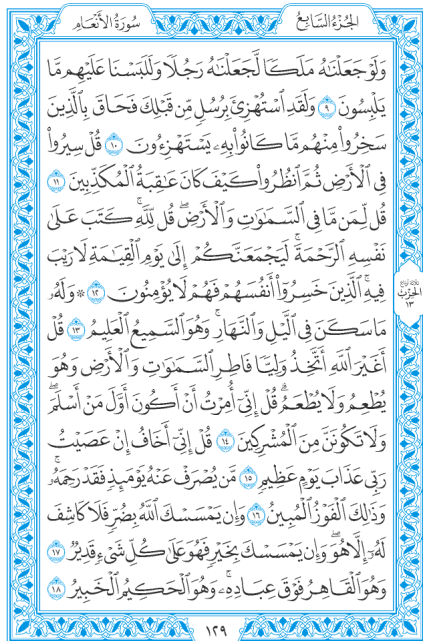 الجزء السابع
سورة الأنعام
وَلَوْ جَعَلْنَٰهُ مَلَكًا لَّجَعَلْنَٰهُ رَجُلًا وَلَلَبَسْنَا عَلَيْهِم مَّا
يَلْبِسُونَ ٩ وَلَقَدِ ٱسْتُهْزِئَ بِرُسُلٍ مِّن قَبْلِكَ فَحَاقَ بِٱلَّذِينَ
سَخِرُوا۟ مِنْهُم مَّا كَانُوا۟ بِهِۦ يَسْتَهْزِءُونَ ١٠ قُلْ سِيرُوا۟
فِى ٱلْأَرْضِ ثُمَّ ٱنظُرُوا۟ كَيْفَ كَانَ عَٰقِبَةُ ٱلْمُكَذِّبِينَ ١١
قُل لِّمَن مَّا فِى ٱلسَّمَٰوَٰتِ وَٱلْأَرْضِ ۖ قُل لِّلَّهِ ۚ كَتَبَ عَلَىٰ
نَفْسِهِ ٱلرَّحْمَةَ ۚ لَيَجْمَعَنَّكُمْ إِلَىٰ يَوْمِ ٱلْقِيَٰمَةِ لَا رَيْبَ
فِيهِ ۚ ٱلَّذِينَ خَسِرُوٓا۟ أَنفُسَهُمْ فَهُمْ لَا يُؤْمِنُونَ ١٢ ۞ وَلَهُۥ
مَا سَكَنَ فِى ٱلَّيْلِ وَٱلنَّهَارِ ۚ وَهُوَ ٱلسَّمِيعُ ٱلْعَلِيمُ ١٣ قُلْ
أَغَيْرَ ٱللَّهِ أَتَّخِذُ وَلِيًّا فَاطِرِ ٱلسَّمَٰوَٰتِ وَٱلْأَرْضِ وَهُوَ
يُطْعِمُ وَلَا يُطْعَمُ ۗ قُلْ إِنِّىٓ أُمِرْتُ أَنْ أَكُونَ أَوَّلَ مَنْ أَسْلَمَ ۖ
وَلَا تَكُونَنَّ مِنَ ٱلْمُشْرِكِينَ ١٤ قُلْ إِنِّىٓ أَخَافُ إِنْ عَصَيْتُ
رَبِّى عَذَابَ يَوْمٍ عَظِيمٍ ١٥ مَّن يُصْرَفْ عَنْهُ يَوْمَئِذٍ فَقَدْ رَحِمَهُۥ ۚ
وَذَٰلِكَ ٱلْفَوْزُ ٱلْمُبِينُ ١٦ وَإِن يَمْسَسْكَ ٱللَّهُ بِضُرٍّ فَلَا كَاشِفَ
لَهُۥٓ إِلَّا هُوَ ۖ وَإِن يَمْسَسْكَ بِخَيْرٍ فَهُوَ عَلَىٰ كُلِّ شَىْءٍ قَدِيرٌ ١٧
وَهُوَ ٱلْقَاهِرُ فَوْقَ عِبَادِهِۦ ۚ وَهُوَ ٱلْحَكِيمُ ٱلْخَبِيرُ ١٨
الحزب
١٣
١٢٩